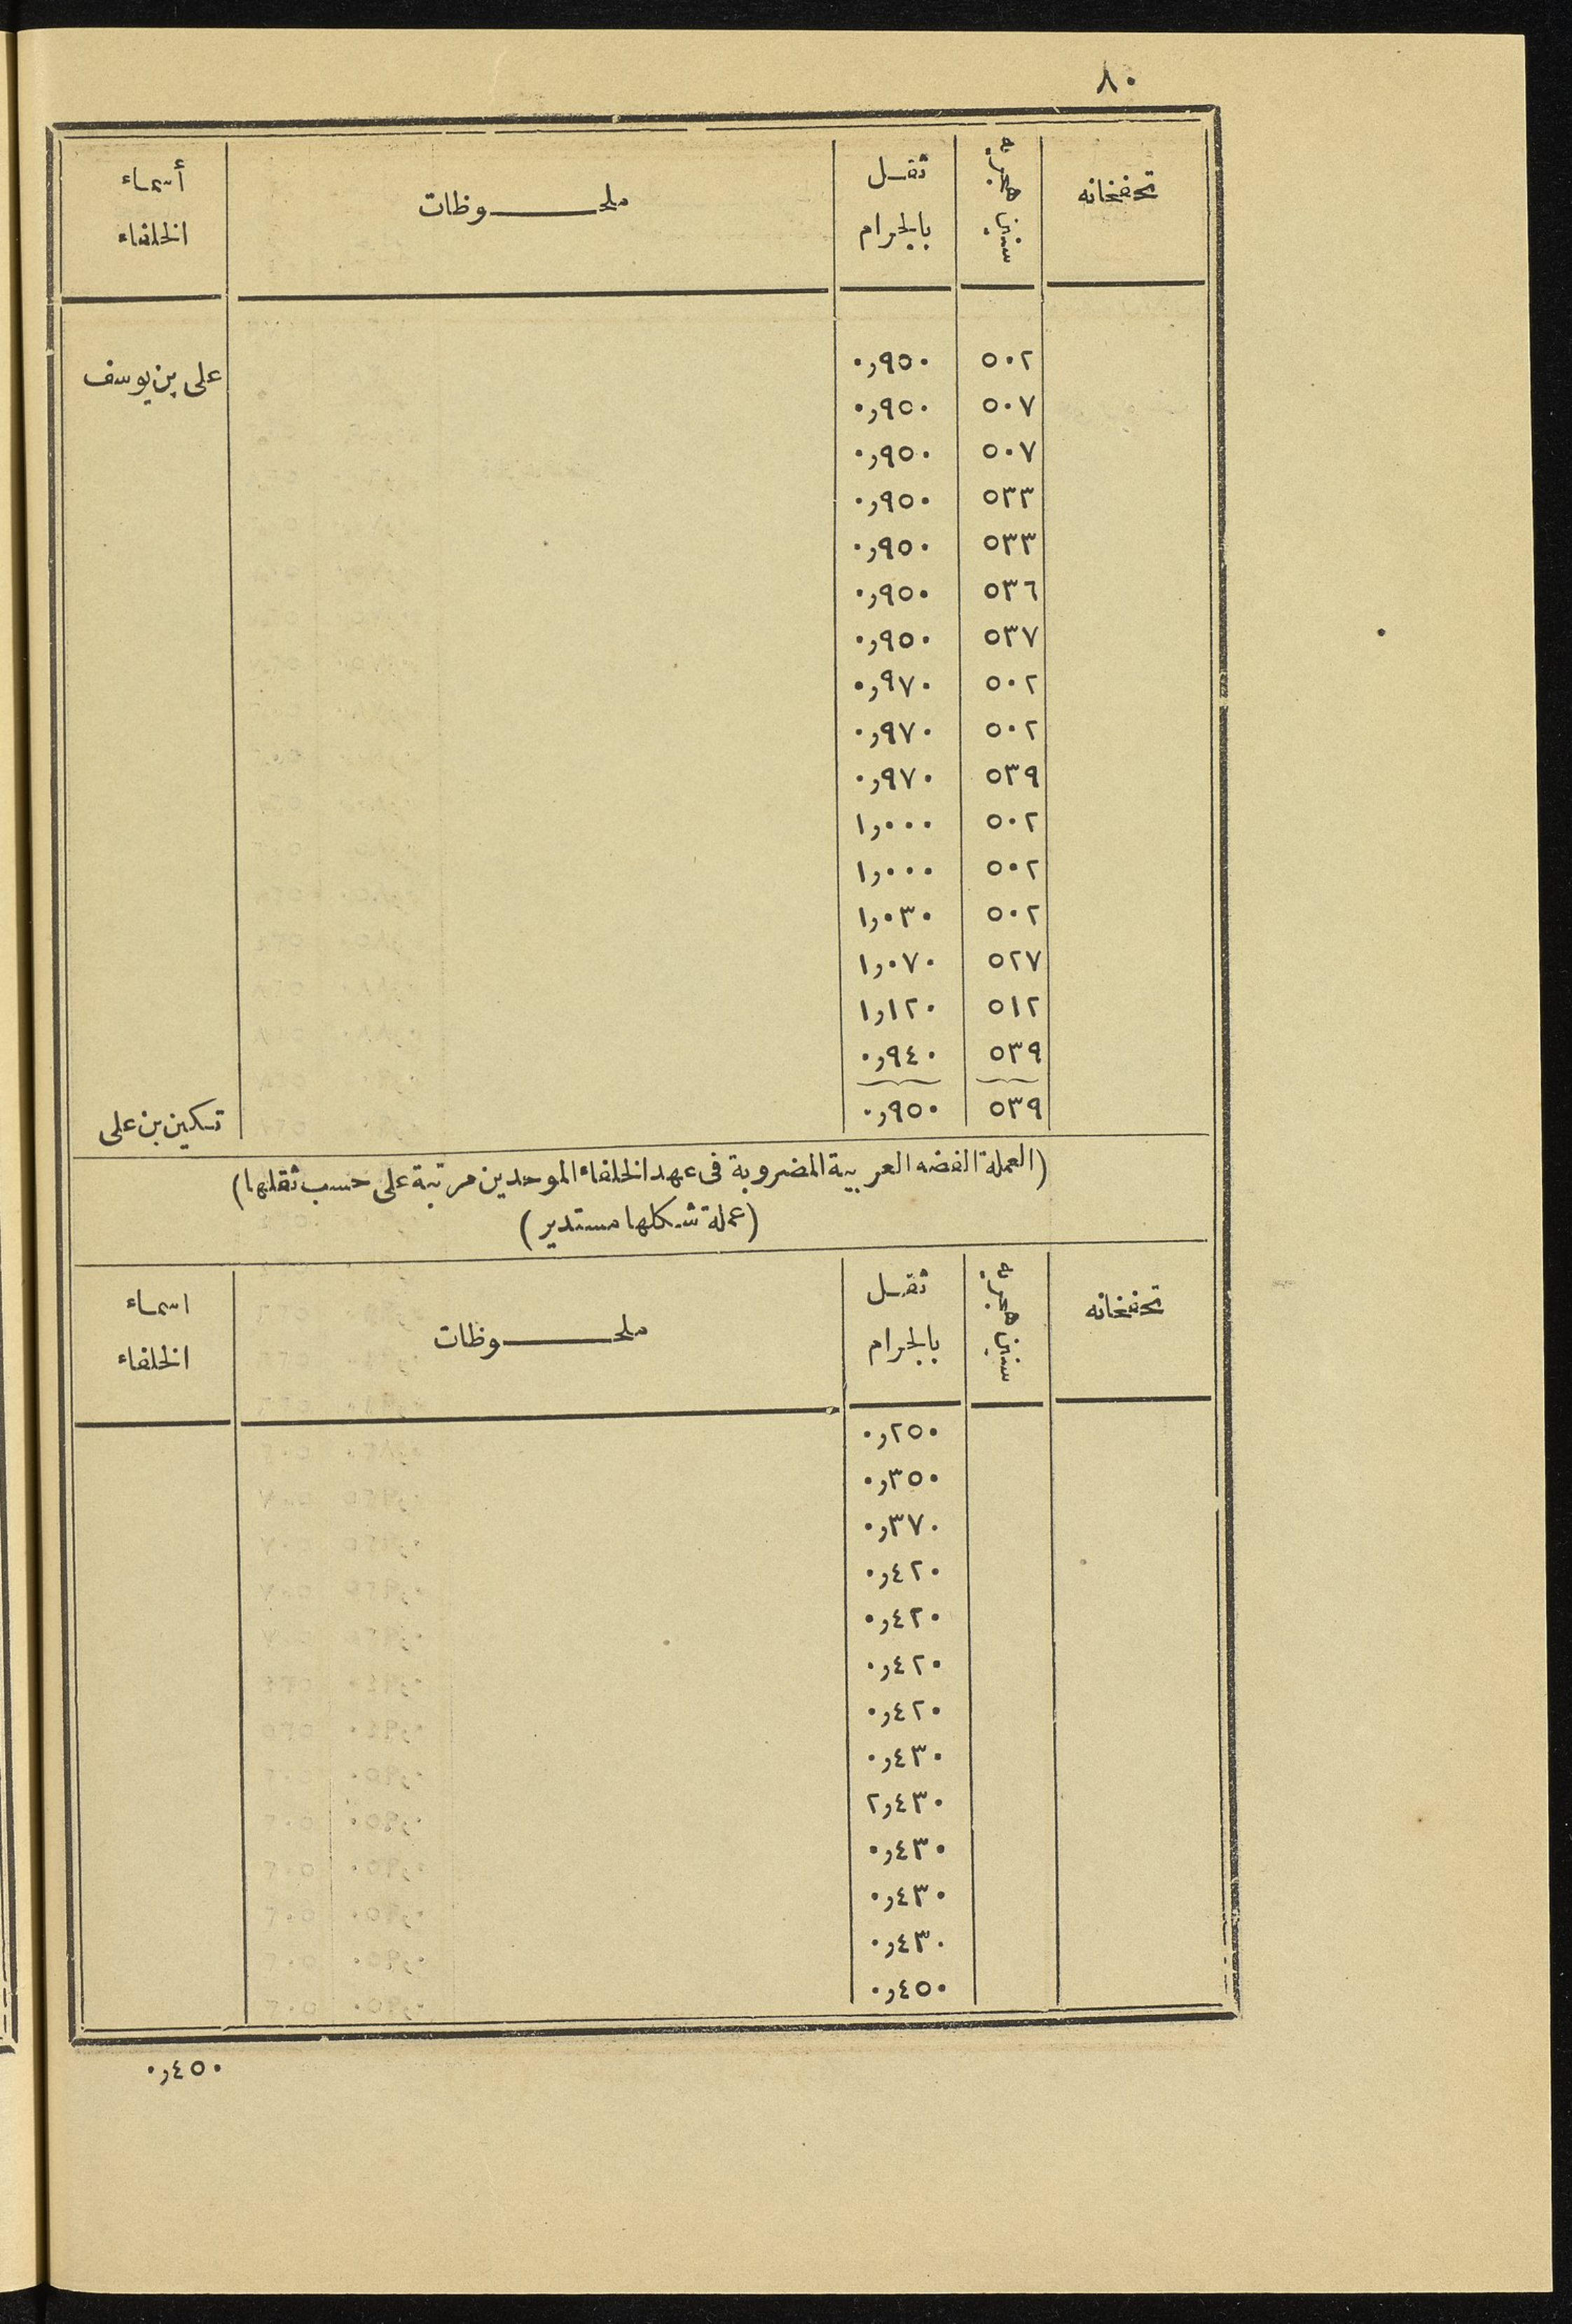 ٨٠
تحفخانه	سنين هجرية	ثقل بالجرام	ملحوظات	أسماء الخلفاء
	٥٠٢	٠٫٩٥٠		على بن يوسف
	٥٠٧	٠٫٩٥٠
	٥٠٧	٠٫٩٥٠
	٥٣٣	٠٫٩٥٠
	٥٣٣	٠٫٩٥٠
	٥٣٦	٠٫٩٥٠
	٥٣٧	٠٫٩٥٠
	٥٠٢	٠٫٩٧٠
	٥٠٢	٠٫٩٧٠
	٥٣٩	٠٫٩٧٠
	٥٠٢	١٫٠٠٠
	٥٠٢	١٫٠٠٠
	٥٠٢	١٫٠٣٠
	٥٢٧	١٫٠٧٠
	٥١٢	١٫١٢٠
	٥٣٩	٠٫٩٤٠
	٥٣٩	٠٫٩٥٠		تسكين بن على
(العملة الفضه العربية المضروبة فى عهد الخلفاء الموحدين مرتبة على حسب ثقلها)
(عملة شكلها مستدير)
تحفخانه	سنين هجرية	ثقل بالجرام	ملحوظات	اسماء الخلفاء
٠٫٢٥٠
٠٫٣٥٠
٠٫٣٧٠
٠٫٤٢٠
٠٫٤٢٠
٠٫٤٢٠
٠٫٤٢٠
٠٫٤٣٠
٢٫٤٣٠
٠٫٤٣٠
٠٫٤٣٠
٠٫٤٣٠
٠٫٤٥٠
٠٫٤٥٠